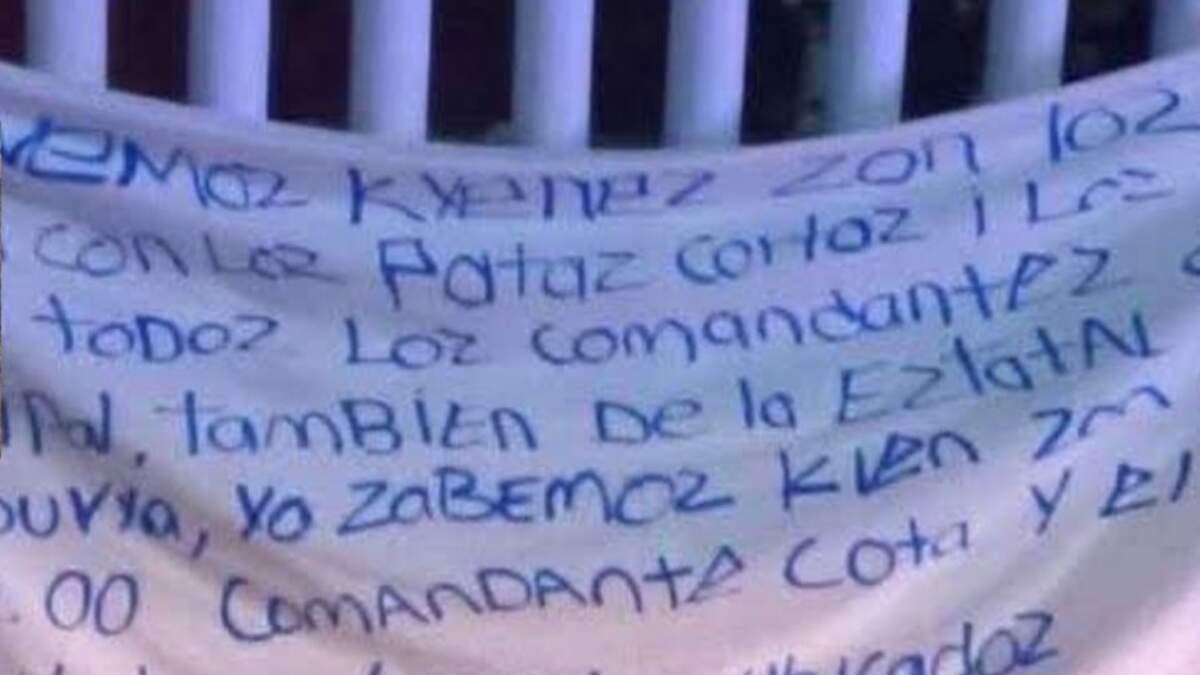 emoz Kyenez zon loz
con Loz Pataz cortoz i Loz
toDoz Loz comandantez
Pal, tamBiEn De la EztatAl
yo zaBEmoz kien zon
.00 ComAnDAntE Cota y El
ubicadoz